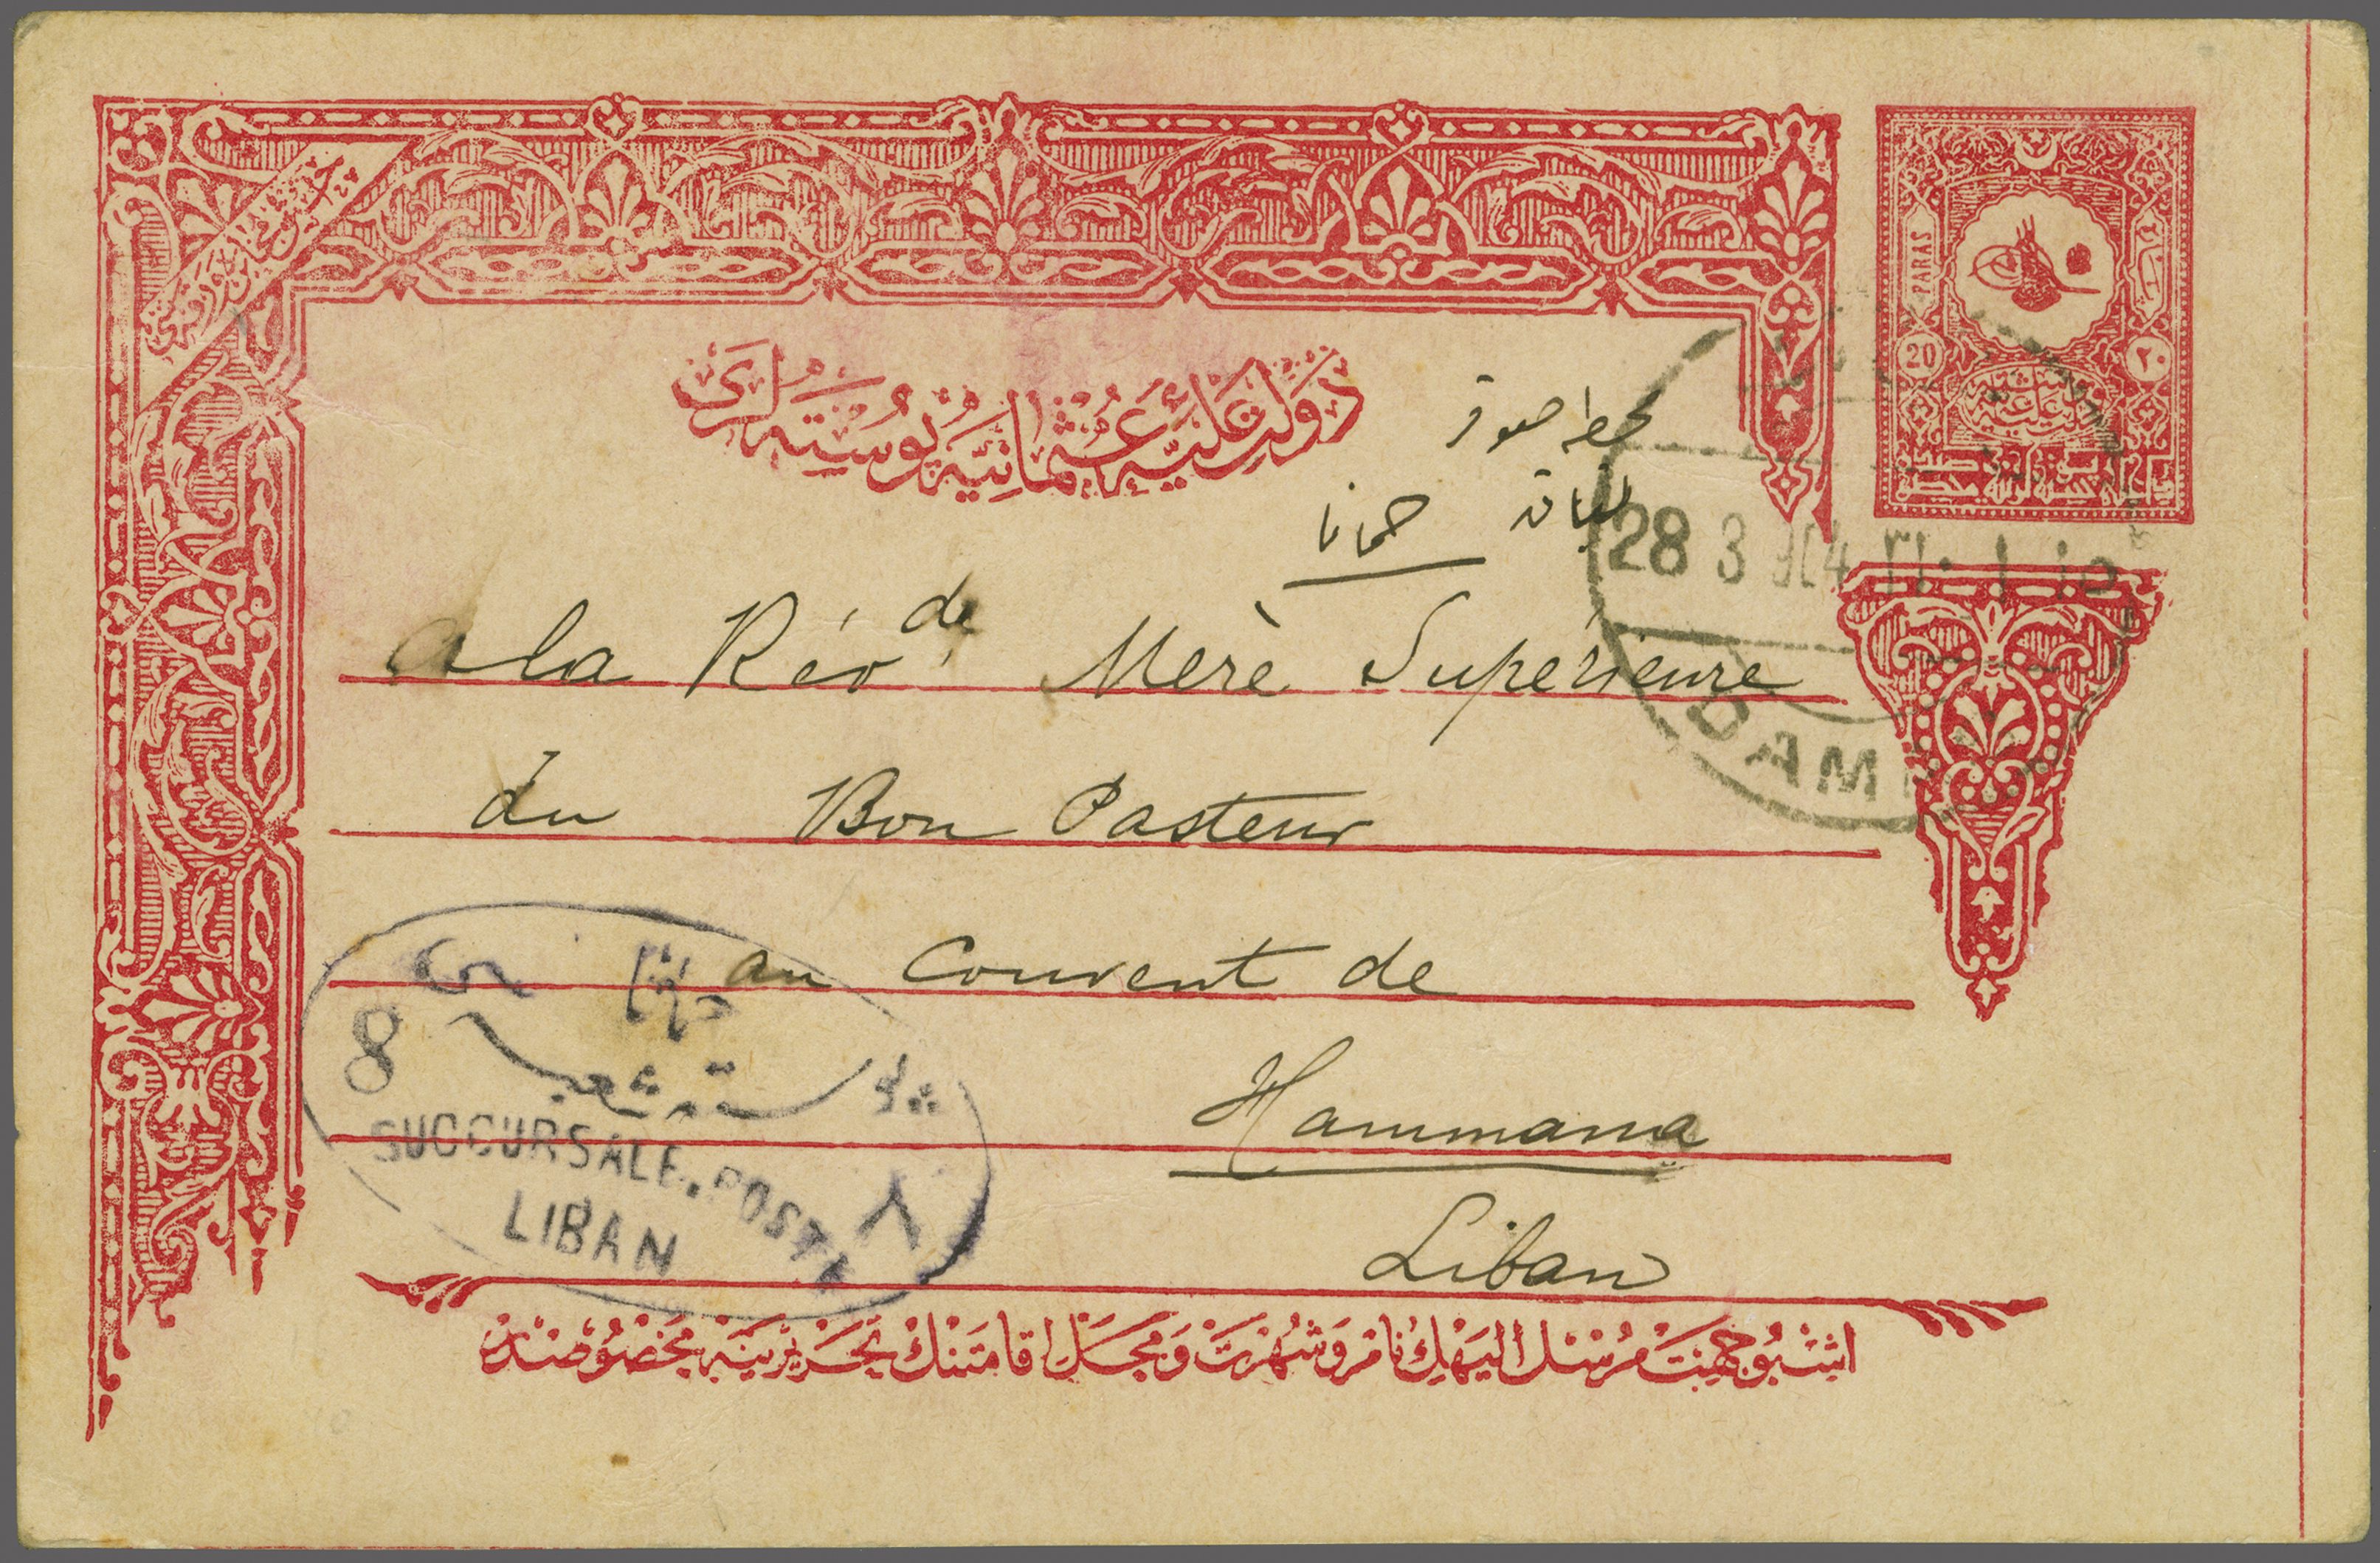 دولت علیهٔ عثمانیه پوسته لری
PARAS
20
٢٠
محطه صوفر
لبنان حمانا
28 3 904
٣٢٠ ١ ١٥
DAM
a la Révde Mère Supérieure
du Bon Pasteur
au Couvent de
Hammana
Liban
8
٨
SUCCURSALE. POSTE
LIBAN
اشبو جهت مرسل اليهك نام و شهرت و محل اقامتنك تحريرينه مخصوصدر